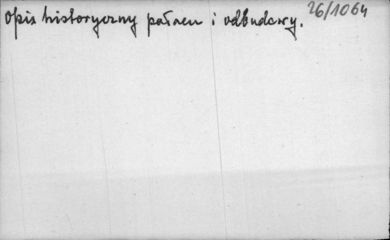 Opis historyczny pałacu i odbudowy.
26/1064